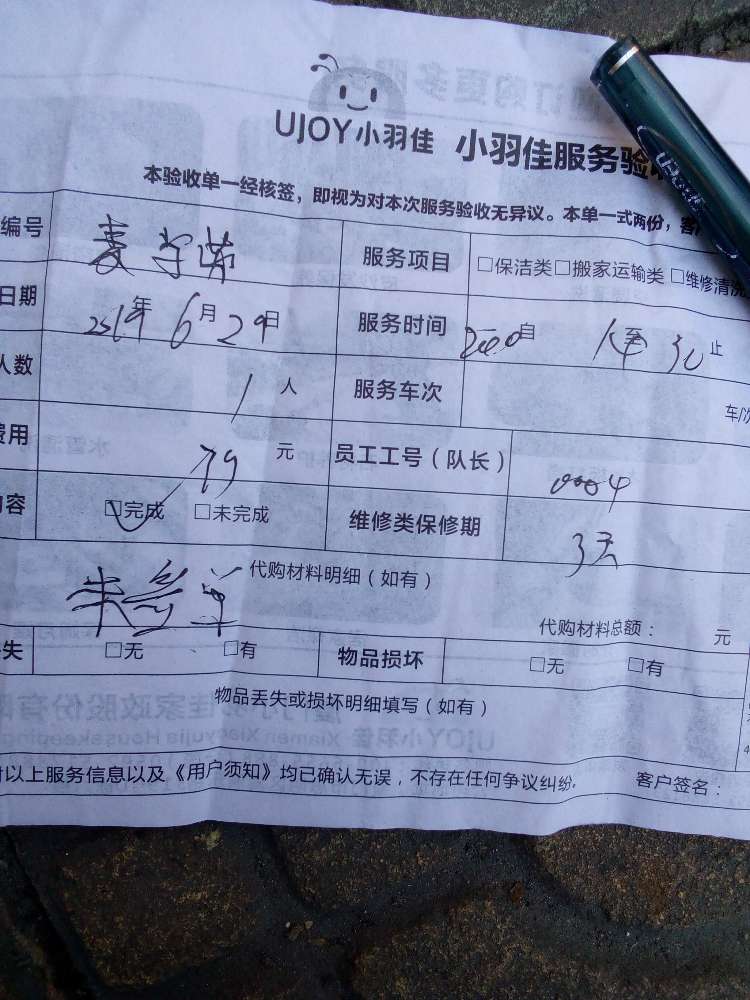 UJOY小羽佳 小羽佳服务验
本验收单一经核签，即视为对本次服务验收无异议。本单一式两份，客
编号 服务项目 □保洁类 □搬家运输类 □维修清洗
日期 年6月29日 服务时间 自 至30止
人数 1人 服务车次 车/次
费用 79元 员工工号（队长） 0004
内容 □完成 □未完成 维修类保修期 3天
代购材料明细（如有）
代购材料总额： 元
失 □无 □有 物品损坏 □无 □有
物品丢失或损坏明细填写（如有）
对以上服务信息以及《用户须知》均已确认无误，不存在任何争议纠纷. 客户签名：